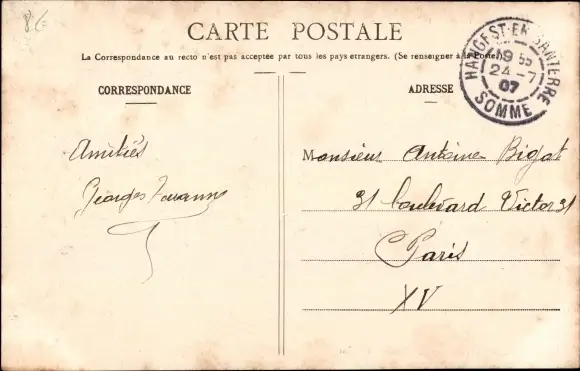 CARTE POSTALE
La Correspondance au recto n'est pas acceptée par tous les pays etrangers. (Se renseigner à la Poste.)
HANGEST-EN-SANTERRE
19 55
24 - 7
07
SOMME
CORRESPONDANCE
ADRESSE
Amitiés
Georges
Monsieur Antoine Bigat
31 boulevard Victor 31
Paris
XV